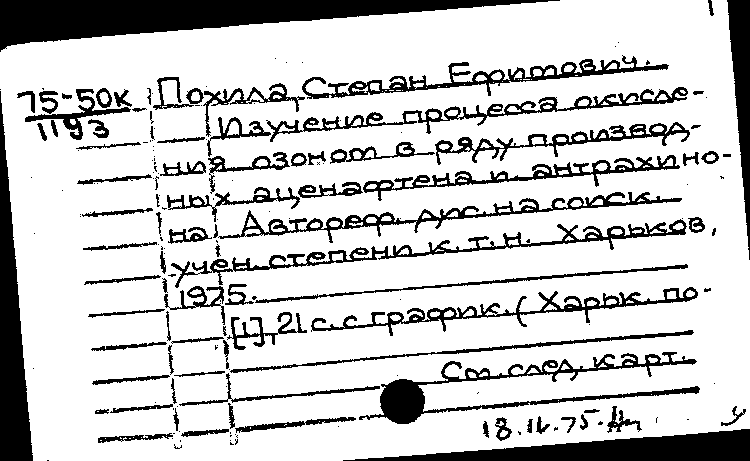 75-50к
1193
Похила, Степан Ефимович.
Изучение процесса окисле-
ния озоном в ряду производ-
ных аценафтена и антрахино-
на. Автореф. дис. на соиск.
учен. степени к. т. н. Харьков,
1975.
[1], 21 с. с график. (Харьк. по-
См. след. карт.
18.IV.75.